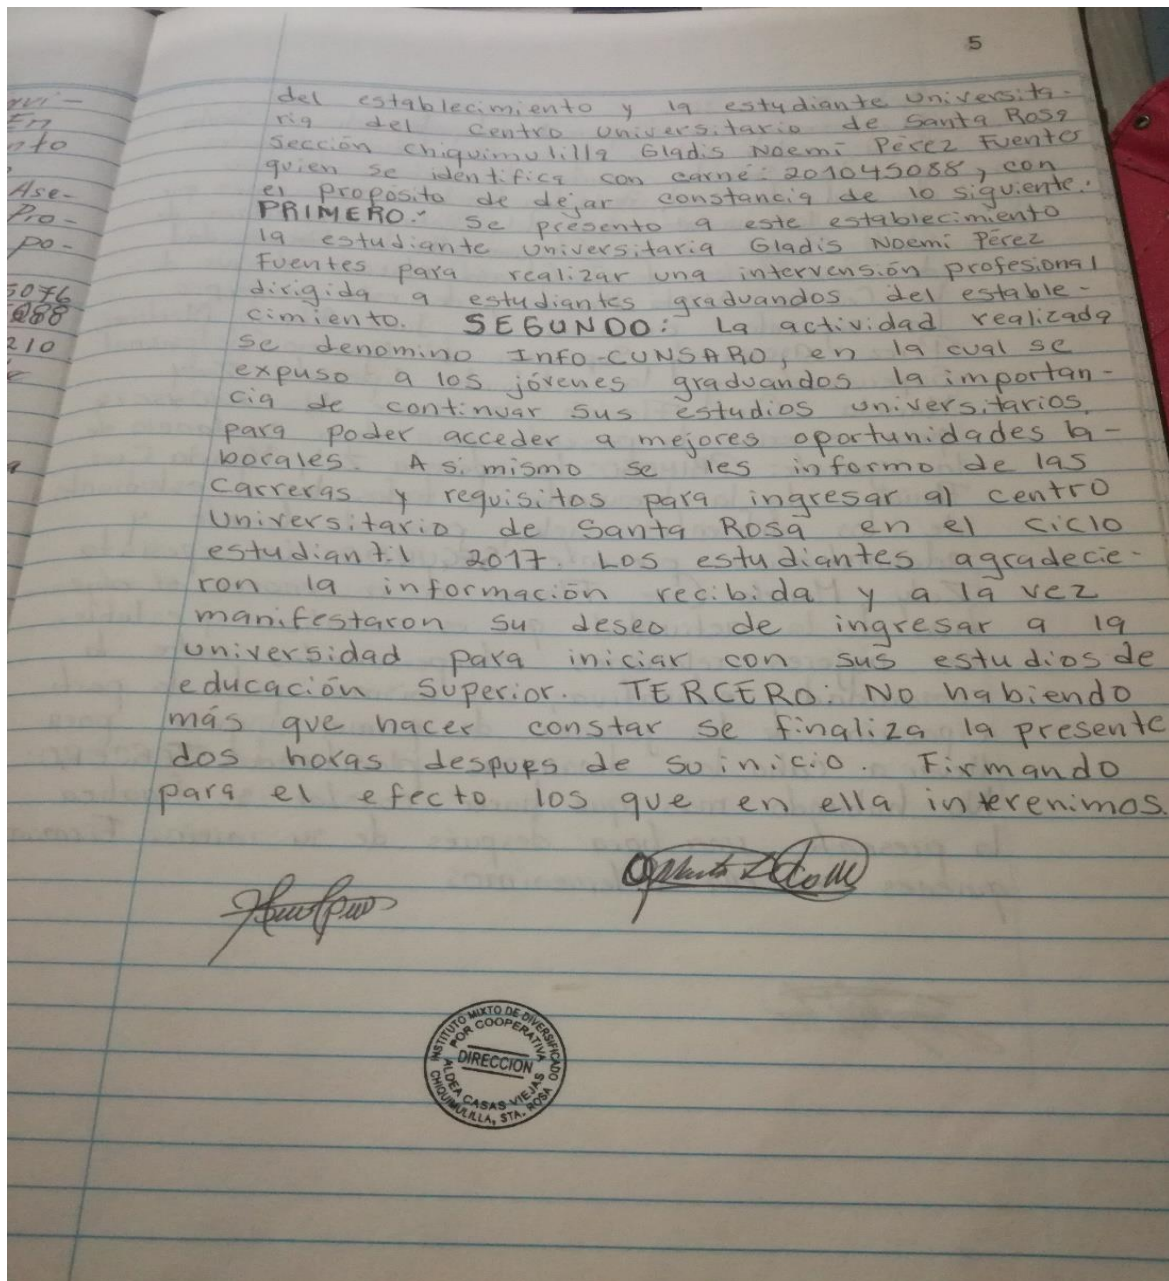 5
del establecimiento y la estudiante universita-
ria del centro universitario de Santa Rosa
Sección chiquimulilla Gladis Noemí Pérez Fuentes
quien se identifica con carné: 201045088, con
el proposito de dejar constancia de lo siguiente:
PRIMERO: se presento a este establecimiento
la estudiante universitaria Gladis Noemí Pérez
Fuentes para realizar una intervensión profesional
dirigida a estudiantes graduandos del estable-
cimiento. SEGUNDO: La actividad realizada
se denomino INFO-CUNSARO, en la cual se
expuso a los jóvenes graduandos la importan-
cia de continuar sus estudios universitarios,
para poder acceder a mejores oportunidades la-
borales. Asi mismo se les informo de las
carreras y requisitos para ingresar al centro
Universitario de Santa Rosa en el ciclo
estudiantil 2017. Los estudiantes agradecie-
ron la información recibida y a la vez
manifestaron su deseo de ingresar a la
universidad para iniciar con sus estudios de
educación superior. TERCERO: No habiendo
más que hacer constar se finaliza la presente
dos horas despues de su inicio. Firmando
para el efecto los que en ella interenimos.
INSTITUTO MIXTO DE DIVERSIFICADO
POR COOPERATIVA
DIRECCION
ALDEA CASAS VIEJAS
CHIQUIMULILLA, STA. ROSA
vi-
En
nto
Ase-
Pro-
po-
5076
288
210